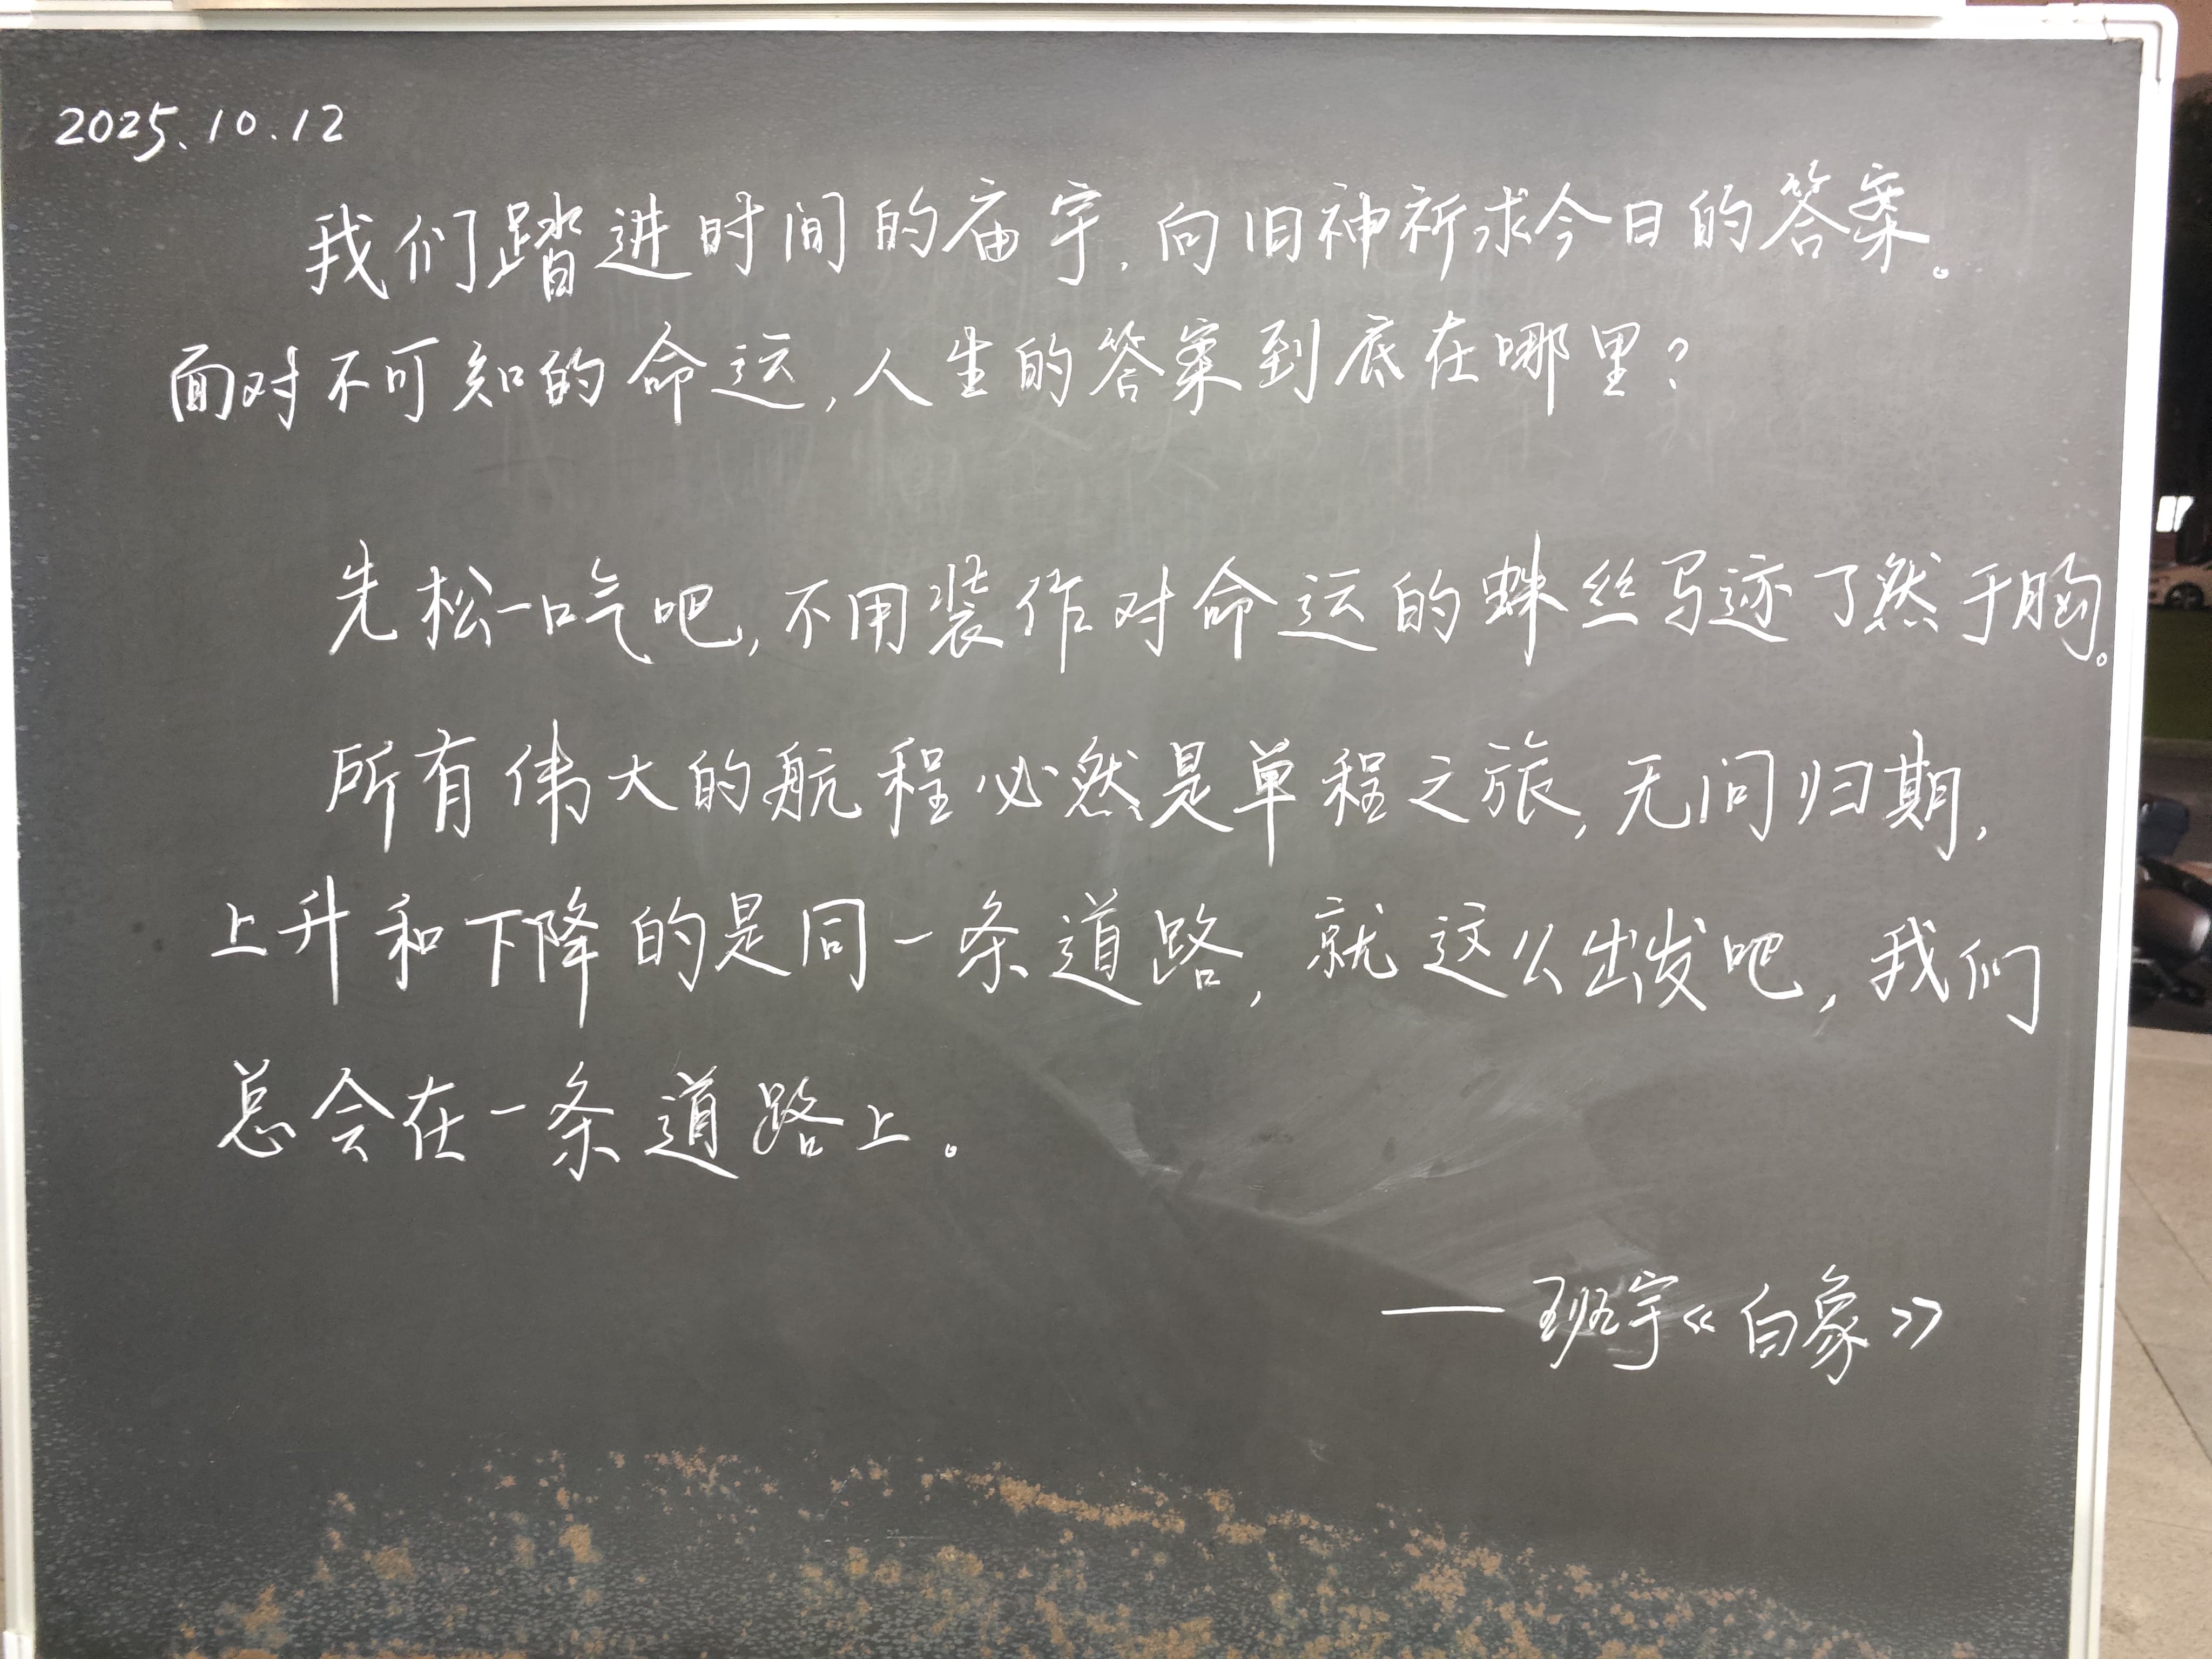 2025.10.12
我们踏进时间的庙宇，向旧神祈求今日的答案。
面对不可知的命运，人生的答案到底在哪里？
先松一口气吧，不用装作对命运的蛛丝马迹了然于胸。
所有伟大的航程必然是单程之旅，无问归期，
上升和下降的是同一条道路，就这么出发吧，我们
总会在一条道路上。
——班宇《白象》